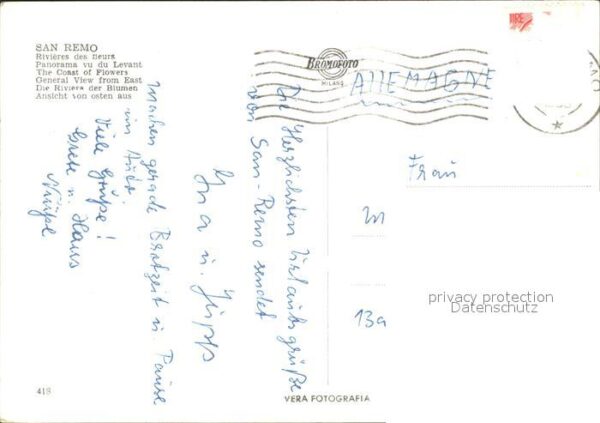 SAN REMO
Rivières des fleurs
Panorama vu du Levant
The Coast of Flowers
General View from East
Die Riviera der Blumen
Ansicht von osten aus
BROMOFOTO
MILANO
LIRE
ALLEMAGNE
Frau
M
13a
privacy protection
Datenschutz
Die Herzlichsten Urlaubsgrüße
von San-Remo sendet
Ina u. Jupp
Machen gerade Brotzeit u. Pause
im Auto.
Viele Grüße!
Grete u. Hans
418
VERA FOTOGRAFIA